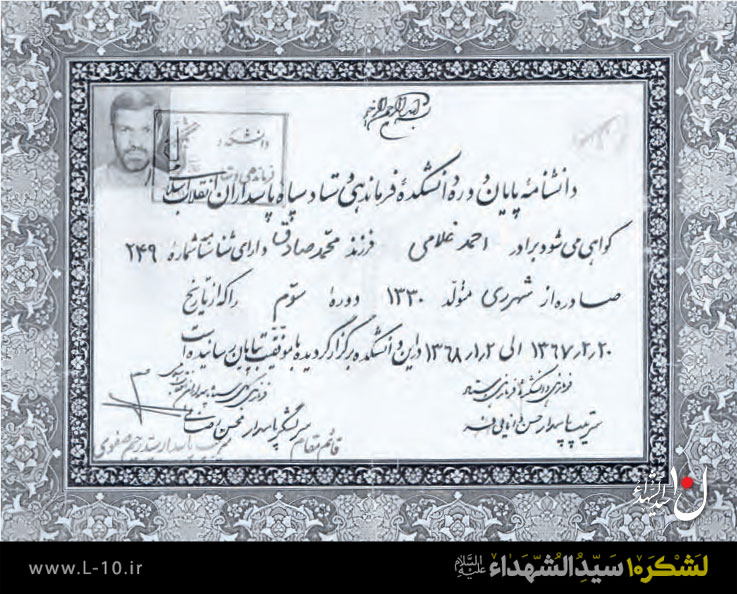 بسم الله الرحمن الرحیم
دانشکده
فرماندهی و ستاد
دانشنامهٔ پایان دورهٔ دانشکدهٔ فرماندهی و ستاد سپاه پاسداران انقلاب اسلامی
گواهی می شود برادر احمد غلامی فرزند محمد صادق دارای شناسنامه شمارهٔ ۲۴۹
صادره از شهر ری متولد ۱۳۳۰ دورهٔ سوم را که از تاریخ
۱۳۶۷٫۲٫۲۰ الی ۱۳۶۸٫۱٫۲ در این دانشکده برگزار گردیده با موفقیت بپایان رسانیده است
فرماندهی دانشکدهٔ فرماندهی و ستاد
سرتیپ پاسدار حسن
فرماندهی کل سپاه پاسداران انقلاب اسلامی
سرلشگر پاسدار محسن رضائی
قائم مقام
سرتیپ پاسدار سید رحیم صفوی
لشکر ۱۰ سیّدُ الشّهداء علیه السلام
www.L-10.ir